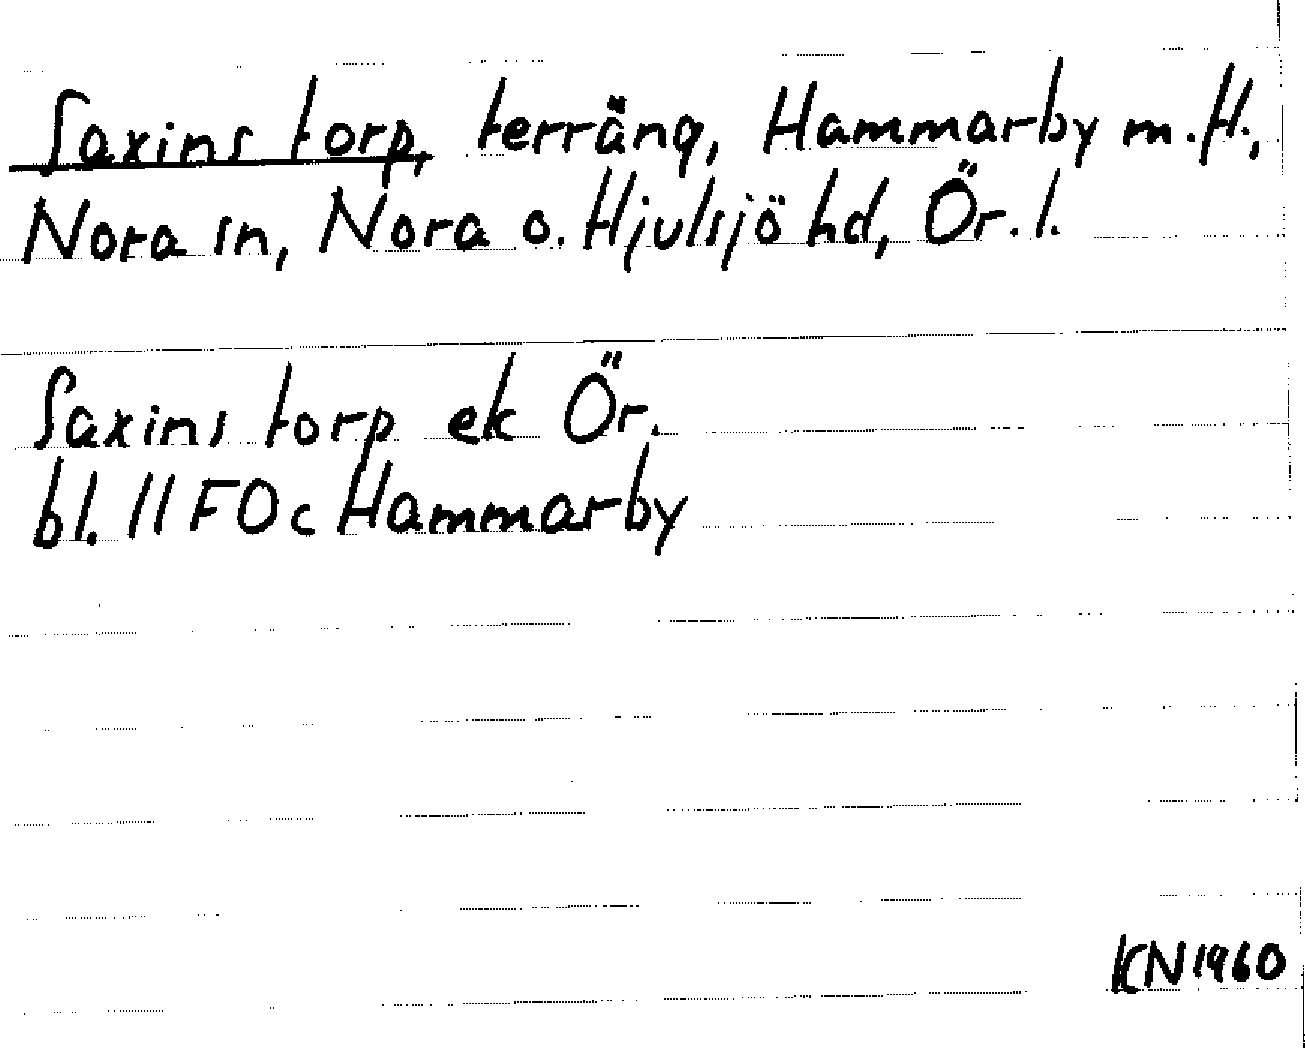 Saxins torp, terräng, Hammarby m.fl.,
Nora sn, Nora o. Hjulsjö hd, Ör. l.
Saxins torp ek Ör.
bl. 11 F 0 c Hammarby
KN 1960